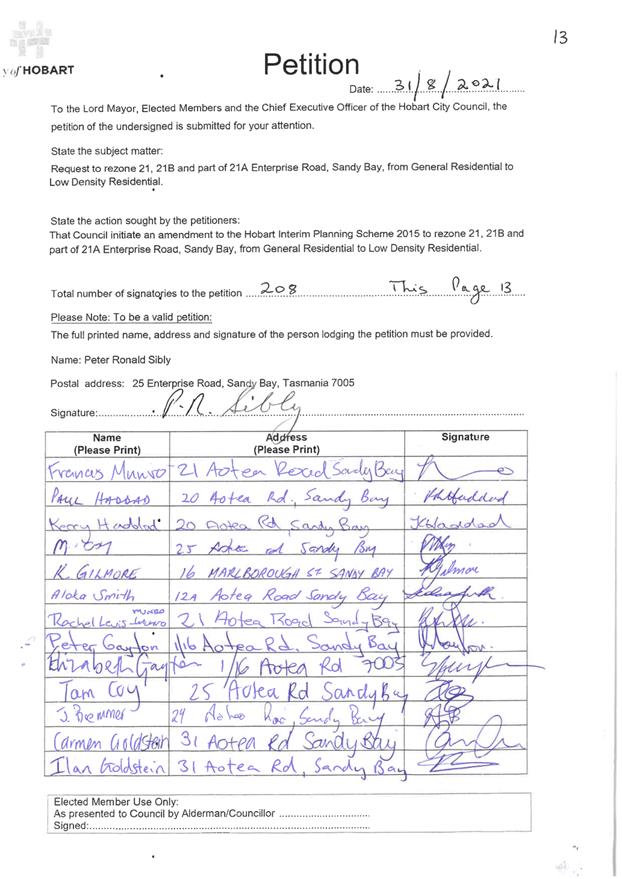 13
y of HOBART
Petition
Date: 31/8/2021
To the Lord Mayor, Elected Members and the Chief Executive Officer of the Hobart City Council, the
petition of the undersigned is submitted for your attention.
State the subject matter:
Request to rezone 21, 21B and part of 21A Enterprise Road, Sandy Bay, from General Residential to
Low Density Residential.
State the action sought by the petitioners:
That Council initiate an amendment to the Hobart Interim Planning Scheme 2015 to rezone 21, 21B and
part of 21A Enterprise Road, Sandy Bay, from General Residential to Low Density Residential.
Total number of signatories to the petition 208 This Page 13
Please Note: To be a valid petition:
The full printed name, address and signature of the person lodging the petition must be provided.
Name: Peter Ronald Sibly
Postal address: 25 Enterprise Road, Sandy Bay, Tasmania 7005
Signature: P.R. Sibly
Name Address Signature
(Please Print) (Please Print)
Francis Munro 21 Aotea Road Sandy Bay
PAUL HADDAD 20 Aotea Rd, Sandy Bay
Kerry Haddad 20 Aotea Rd, Sandy Bay KHaddad
25 Aotea rd Sandy Bay
K. GILMORE 16 MARLBOROUGH ST SANDY BAY KGilmore
Aloka Smith 12A Aotea Road Sandy Bay
Rachel Lewis Munro 21 Aotea Road Sandy Bay
Peter Gayton 1/16 Aotea Rd, Sandy Bay
Elizabeth Gayton 1/16 Aotea Rd 7005
Tam Coy 25 Aotea Rd Sandy Bay
J. Bremmer 29 Sandy Bay
Carmen Goldstein 31 Aotea Rd Sandy Bay
Ilan Goldstein 31 Aotea Rd, Sandy Bay
Elected Member Use Only:
As presented to Council by Alderman/Councillor
Signed: